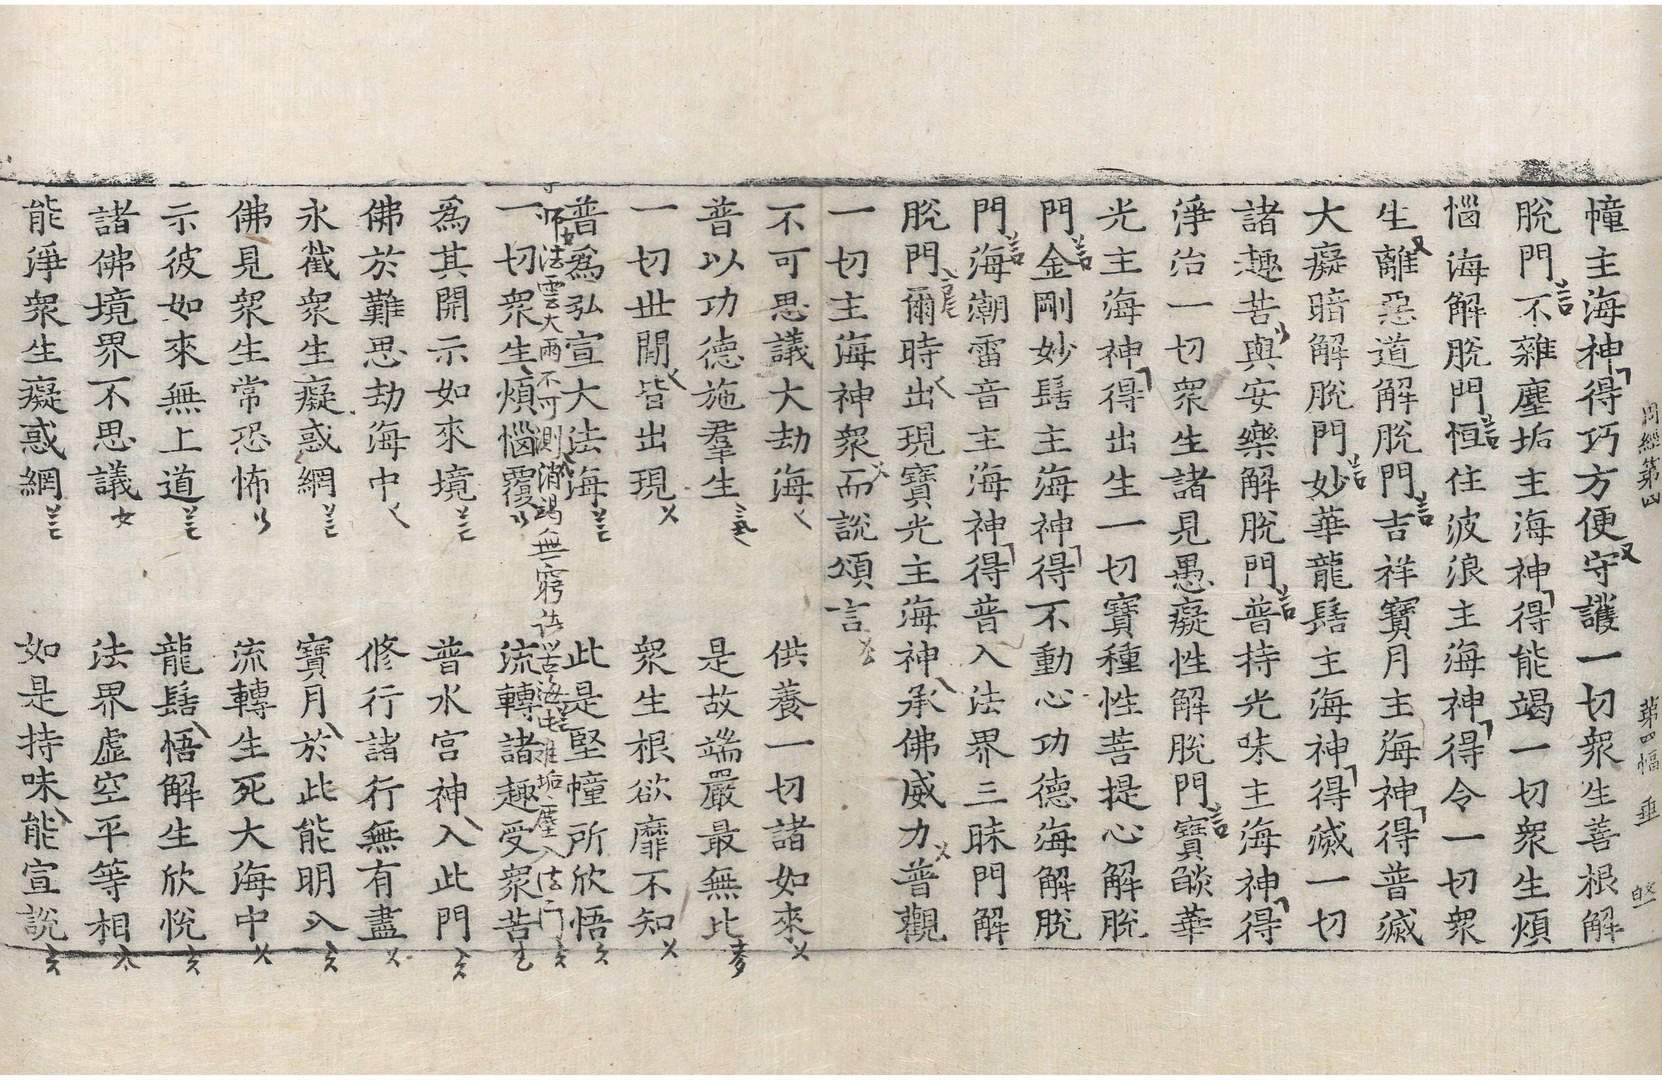 周經第四 第四幅 垂
幢主海神得巧方便守護一切衆生善根解
脫門不雜塵垢主海神得能竭一切衆生煩
惱海解脫門恒住波浪主海神得令一切衆
生離惡道解脫門吉祥寶月主海神得普滅
大癡暗解脫門妙華龍髻主海神得滅一切
諸趣苦與安樂解脫門普持光味主海神得
淨治一切衆生諸見愚癡性解脫門寶燄華
光主海神得出生一切寶種性菩提心解脫
門金剛妙髻主海神得不動心功德海解脫
門海潮雷音主海神得普入法界三昧門解
脫門爾時出現寶光主海神承佛威力普觀
一切主海神衆而說頌言
不可思議大劫海 供養一切諸如來
普以功德施羣生 是故端嚴最無比
一切世間皆出現 衆生根欲靡不知
普爲弘宣大法海 此是堅幢所欣悟
師法雲大雨不可測 消竭無窮諸苦海 此離垢塵入法門
一切衆生煩惱覆 流轉諸趣受衆苦
爲其開示如來境 普水宮神入此門
佛於難思劫海中 修行諸行無有盡
永截衆生癡惑網 寶月於此能明入
佛見衆生常恐怖 流轉生死大海中
示彼如來無上道 龍髻悟解生欣悅
諸佛境界不思議 法界虛空平等相
能淨衆生癡惑網 如是持味能宣說